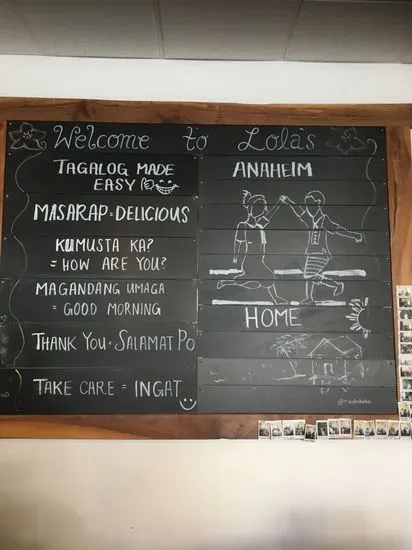 Welcome to Lola's
TAGALOG MADE
EASY
MASARAP = DELICIOUS
KUMUSTA KA?
= HOW ARE YOU?
MAGANDANG UMAGA
= GOOD MORNING
THANK YOU = SALAMAT PO
TAKE CARE = INGAT
ANAHEIM
HOME